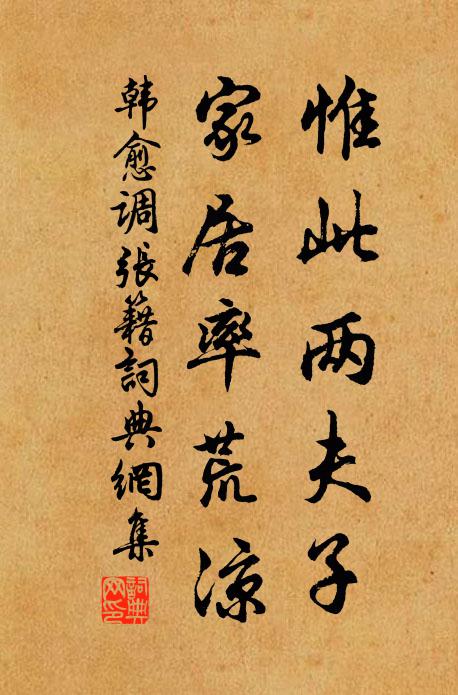 惟此两夫子
家居率荒凉
韩愈调張籍詞典網集
詞典网印